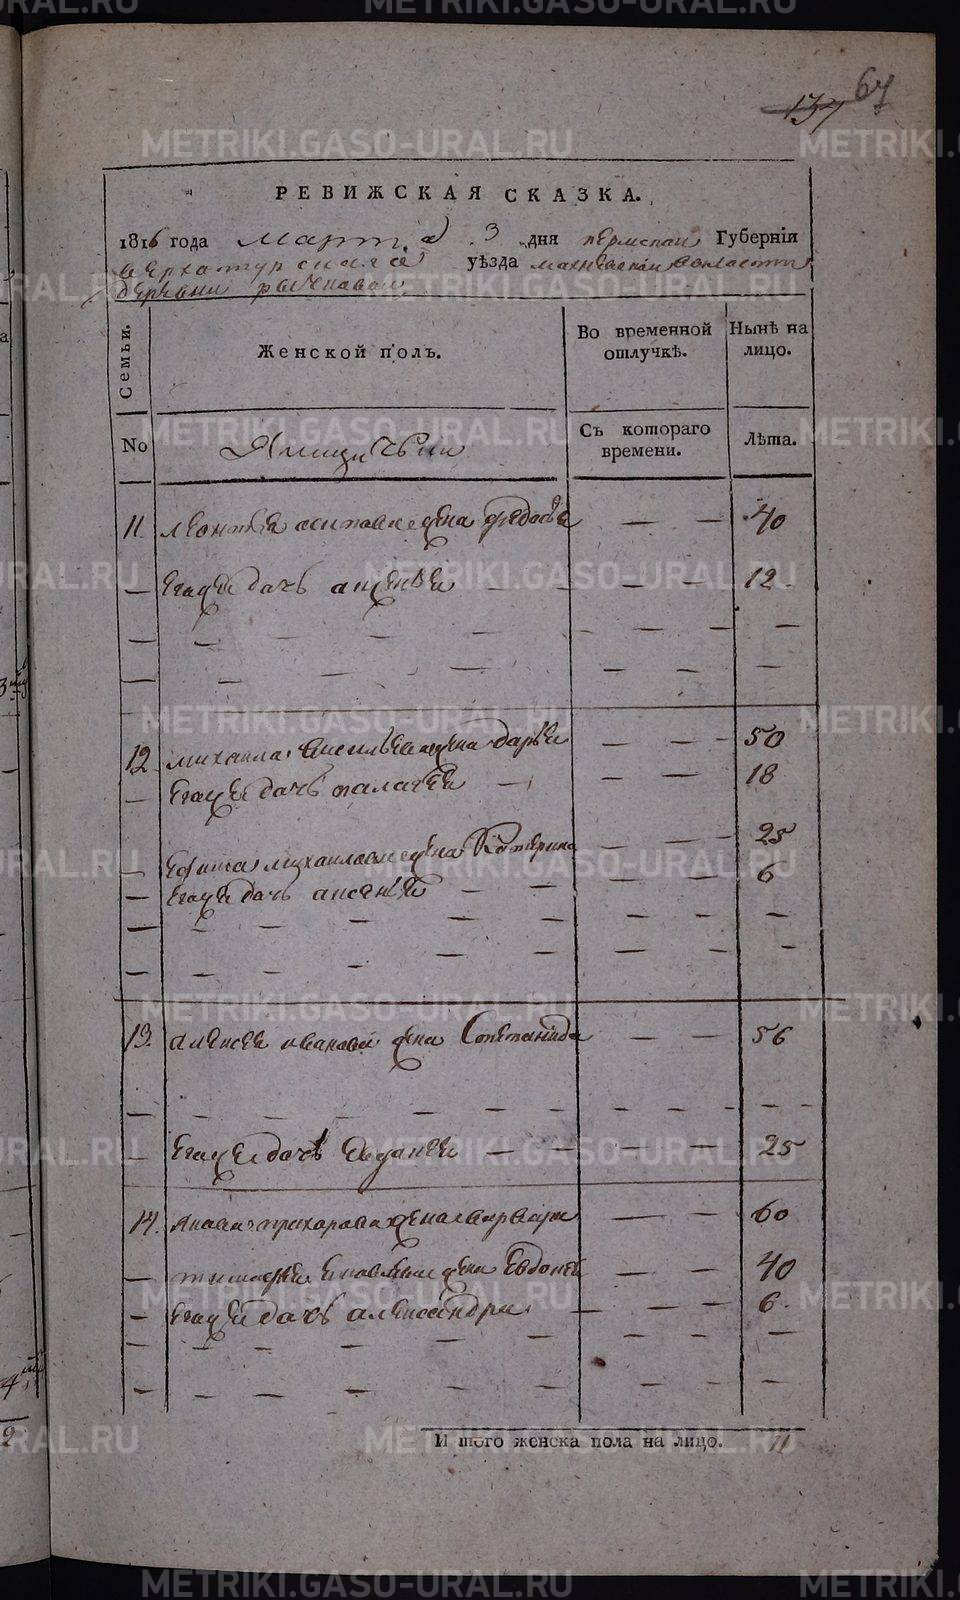 67
137
РЕВИЖСКАЯ СКАЗКА.
1816 года марта 3 дня пермской Губернїи
верхотурскаго уѣзда махневской волости
деревни рычковой
Семьи.
Женской полъ.
Во временной отлучкѣ.
Нынѣ на лицо.
No
Ямщичьи
Съ котораго времени.
Лѣта.
11. леонтья осипова жена федосья — — 40
— его же дочь аксенья — — 12
12 михаила васильева жена дарья — — 50
— его же дочь палагея — — 18
— ефима михаилова жена Катерина — — 25
— его же дочь аксенья — — 6
13. алексея иванова жена Степанида — — 56
— его же дочь — — 25
14. жена варвара — — 60
— тимофея яковлева жена Евдокея — — 40
— его же дочь александра — — 6
И того женска пола на лицо. 11
METRIKI.GASO-URAL.RU